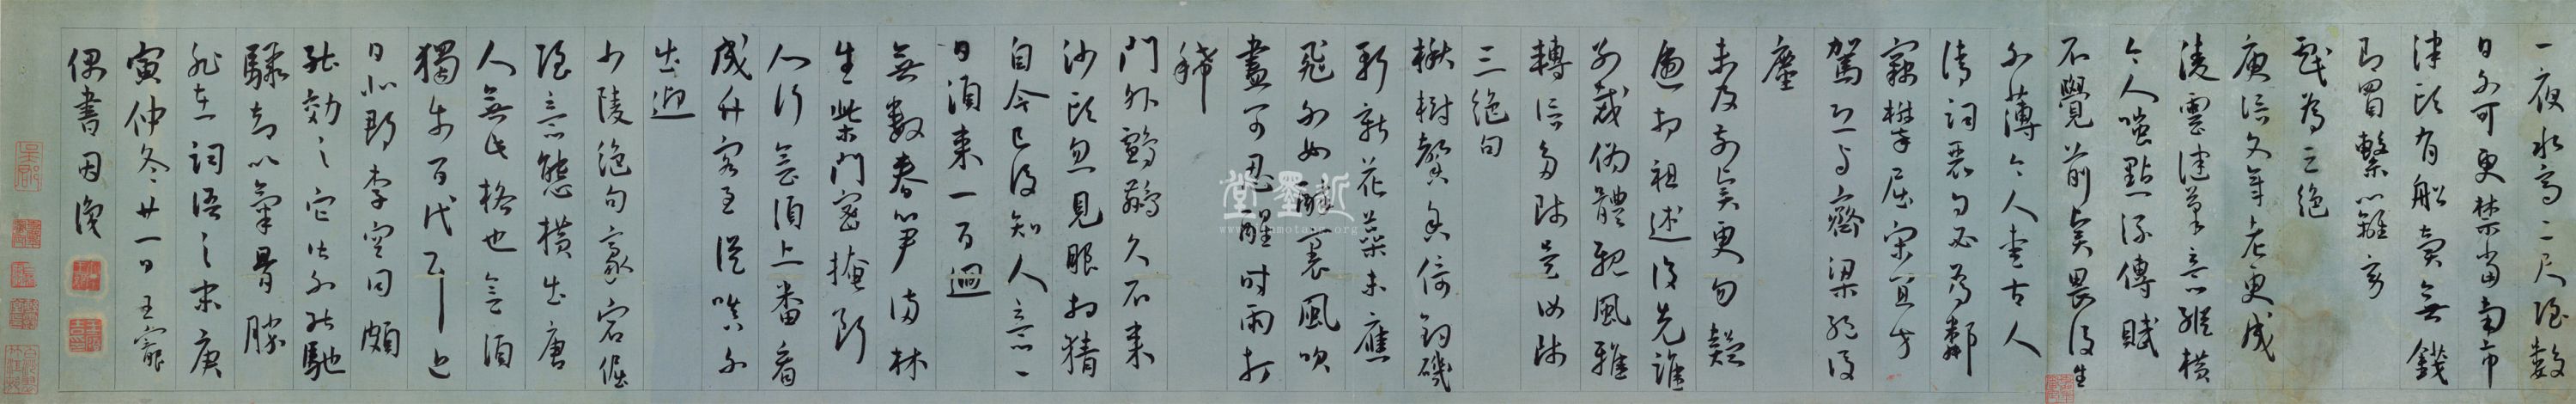 一夜水高二尺強數
日不可更禁當南市
津頭有船賣無錢
即買繫心籬旁
戲為三絕
庾信文章老更成
淩雲健筆意縱橫
今人嗤點流傳賦
不覺前賢畏後生
不薄今人愛古人
清詞麗句必為鄰
竊攀屈宋宜方
駕恐與齊梁作後
塵
未及前賢更勿疑
遞相祖述復先誰
別裁偽體親風雅
轉益多師是汝師
三絕句
楸樹馨香倚釣磯
斬新花蕊未應
飛不如醉裏風吹
盡可忍醒時雨打
稀
門外鸕鶿久不來
沙頭忽見眼相猜
自今已後知人意一
日須來一百迴
無數春笋滿林
生柴門密掩斷
人行會須上番看
成竹客至從嗔不
出迎
少陵絕句豪宕倔
強意態橫出唐
人無此格也
獨步百代
日北郡李空同頗
能效之它皆不能馳
驟
非在詞語之末庚
寅仲冬廿一日王寵
偶書因識
新墨堂